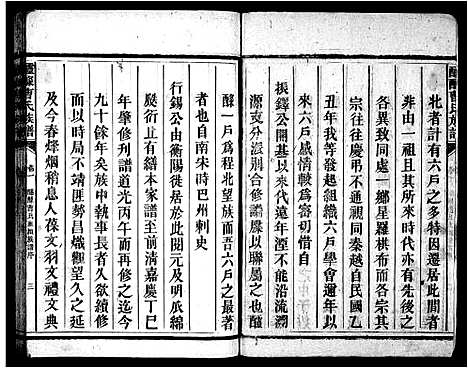 醴陵曹氏族譜
北者計有六戶之多特因遷居此間者
非由一祖且其所來時代亦有先後之
各異致同處一鄉星羅棋布而於各
宗往往慶弔不通視同秦越自民國乙
丑年我等發起組織六戶學會週年以
來六戶感情較爲密切
振鐸公開基以來代遠年湮不能沿流溯
源支分派別合修以聯屬之也醴
醁一戶爲程北望族而吾六戶之最著
者也自南宋時巴州刺史
行錫公由衡陽徙居於此閱元及明瓜綿
餟衍並有續本家譜至前清嘉慶丁巳
年肇修刋譜道光丙午而再修之迄今
九十餘年矣族中執事長者久欲續修
而以時局不靖匪勢昌熾觀望久之
及今春烽烟稍息人葆文羽文禮文典
醴醁曹氏族譜
卷一
三